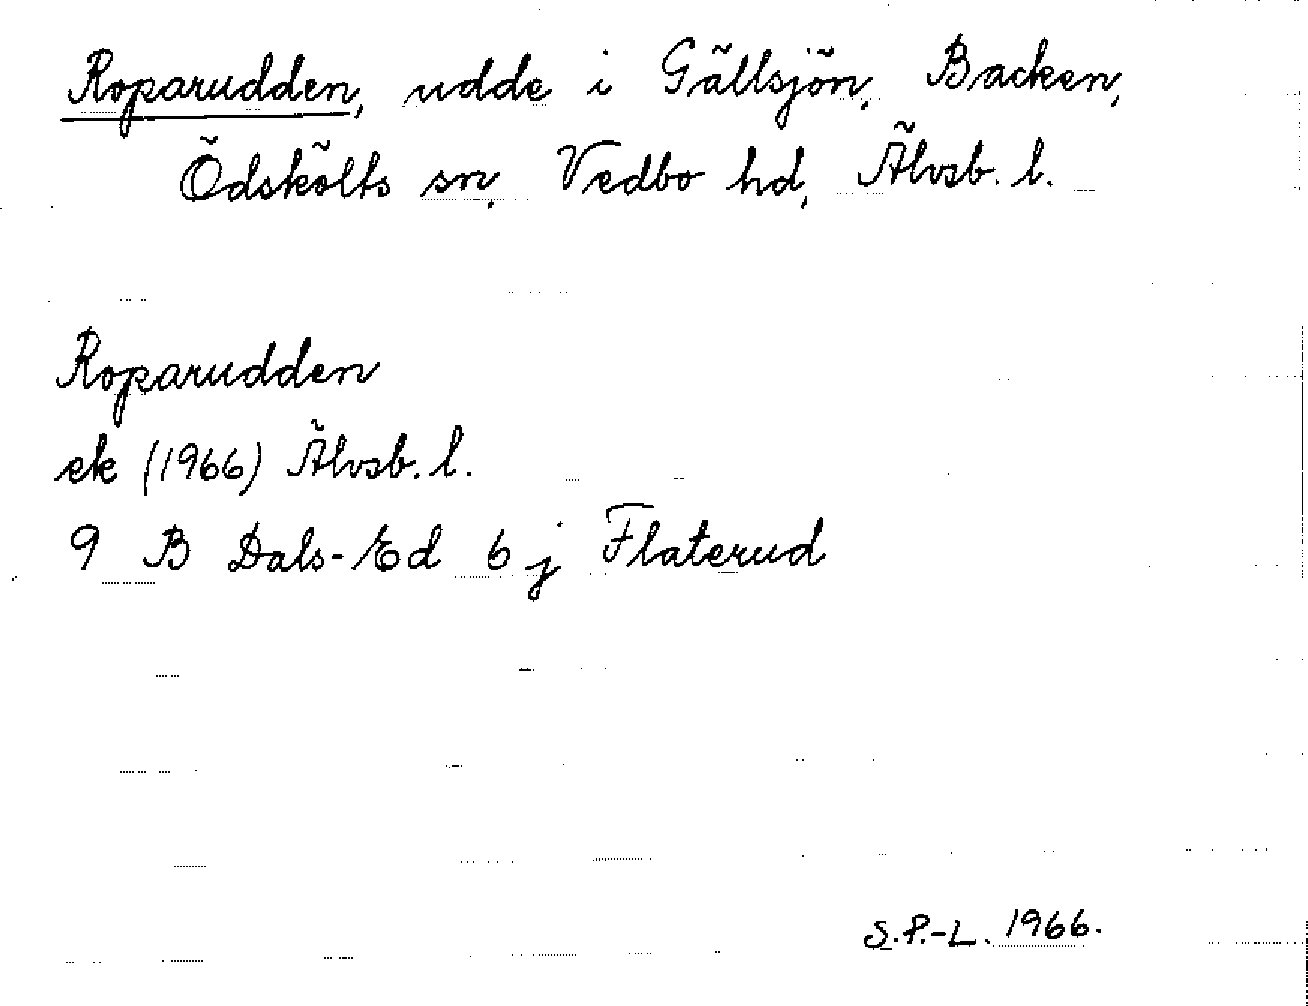 Roparudden, udde i Gällsjön, Backen,
Ödskölts sn, Vedbo hd, Älvsb. l.
Roparudden
ek (1966) Älvsb. l.
9 B Dals-Ed 6 j Flaterud
S.P.-L. 1966.